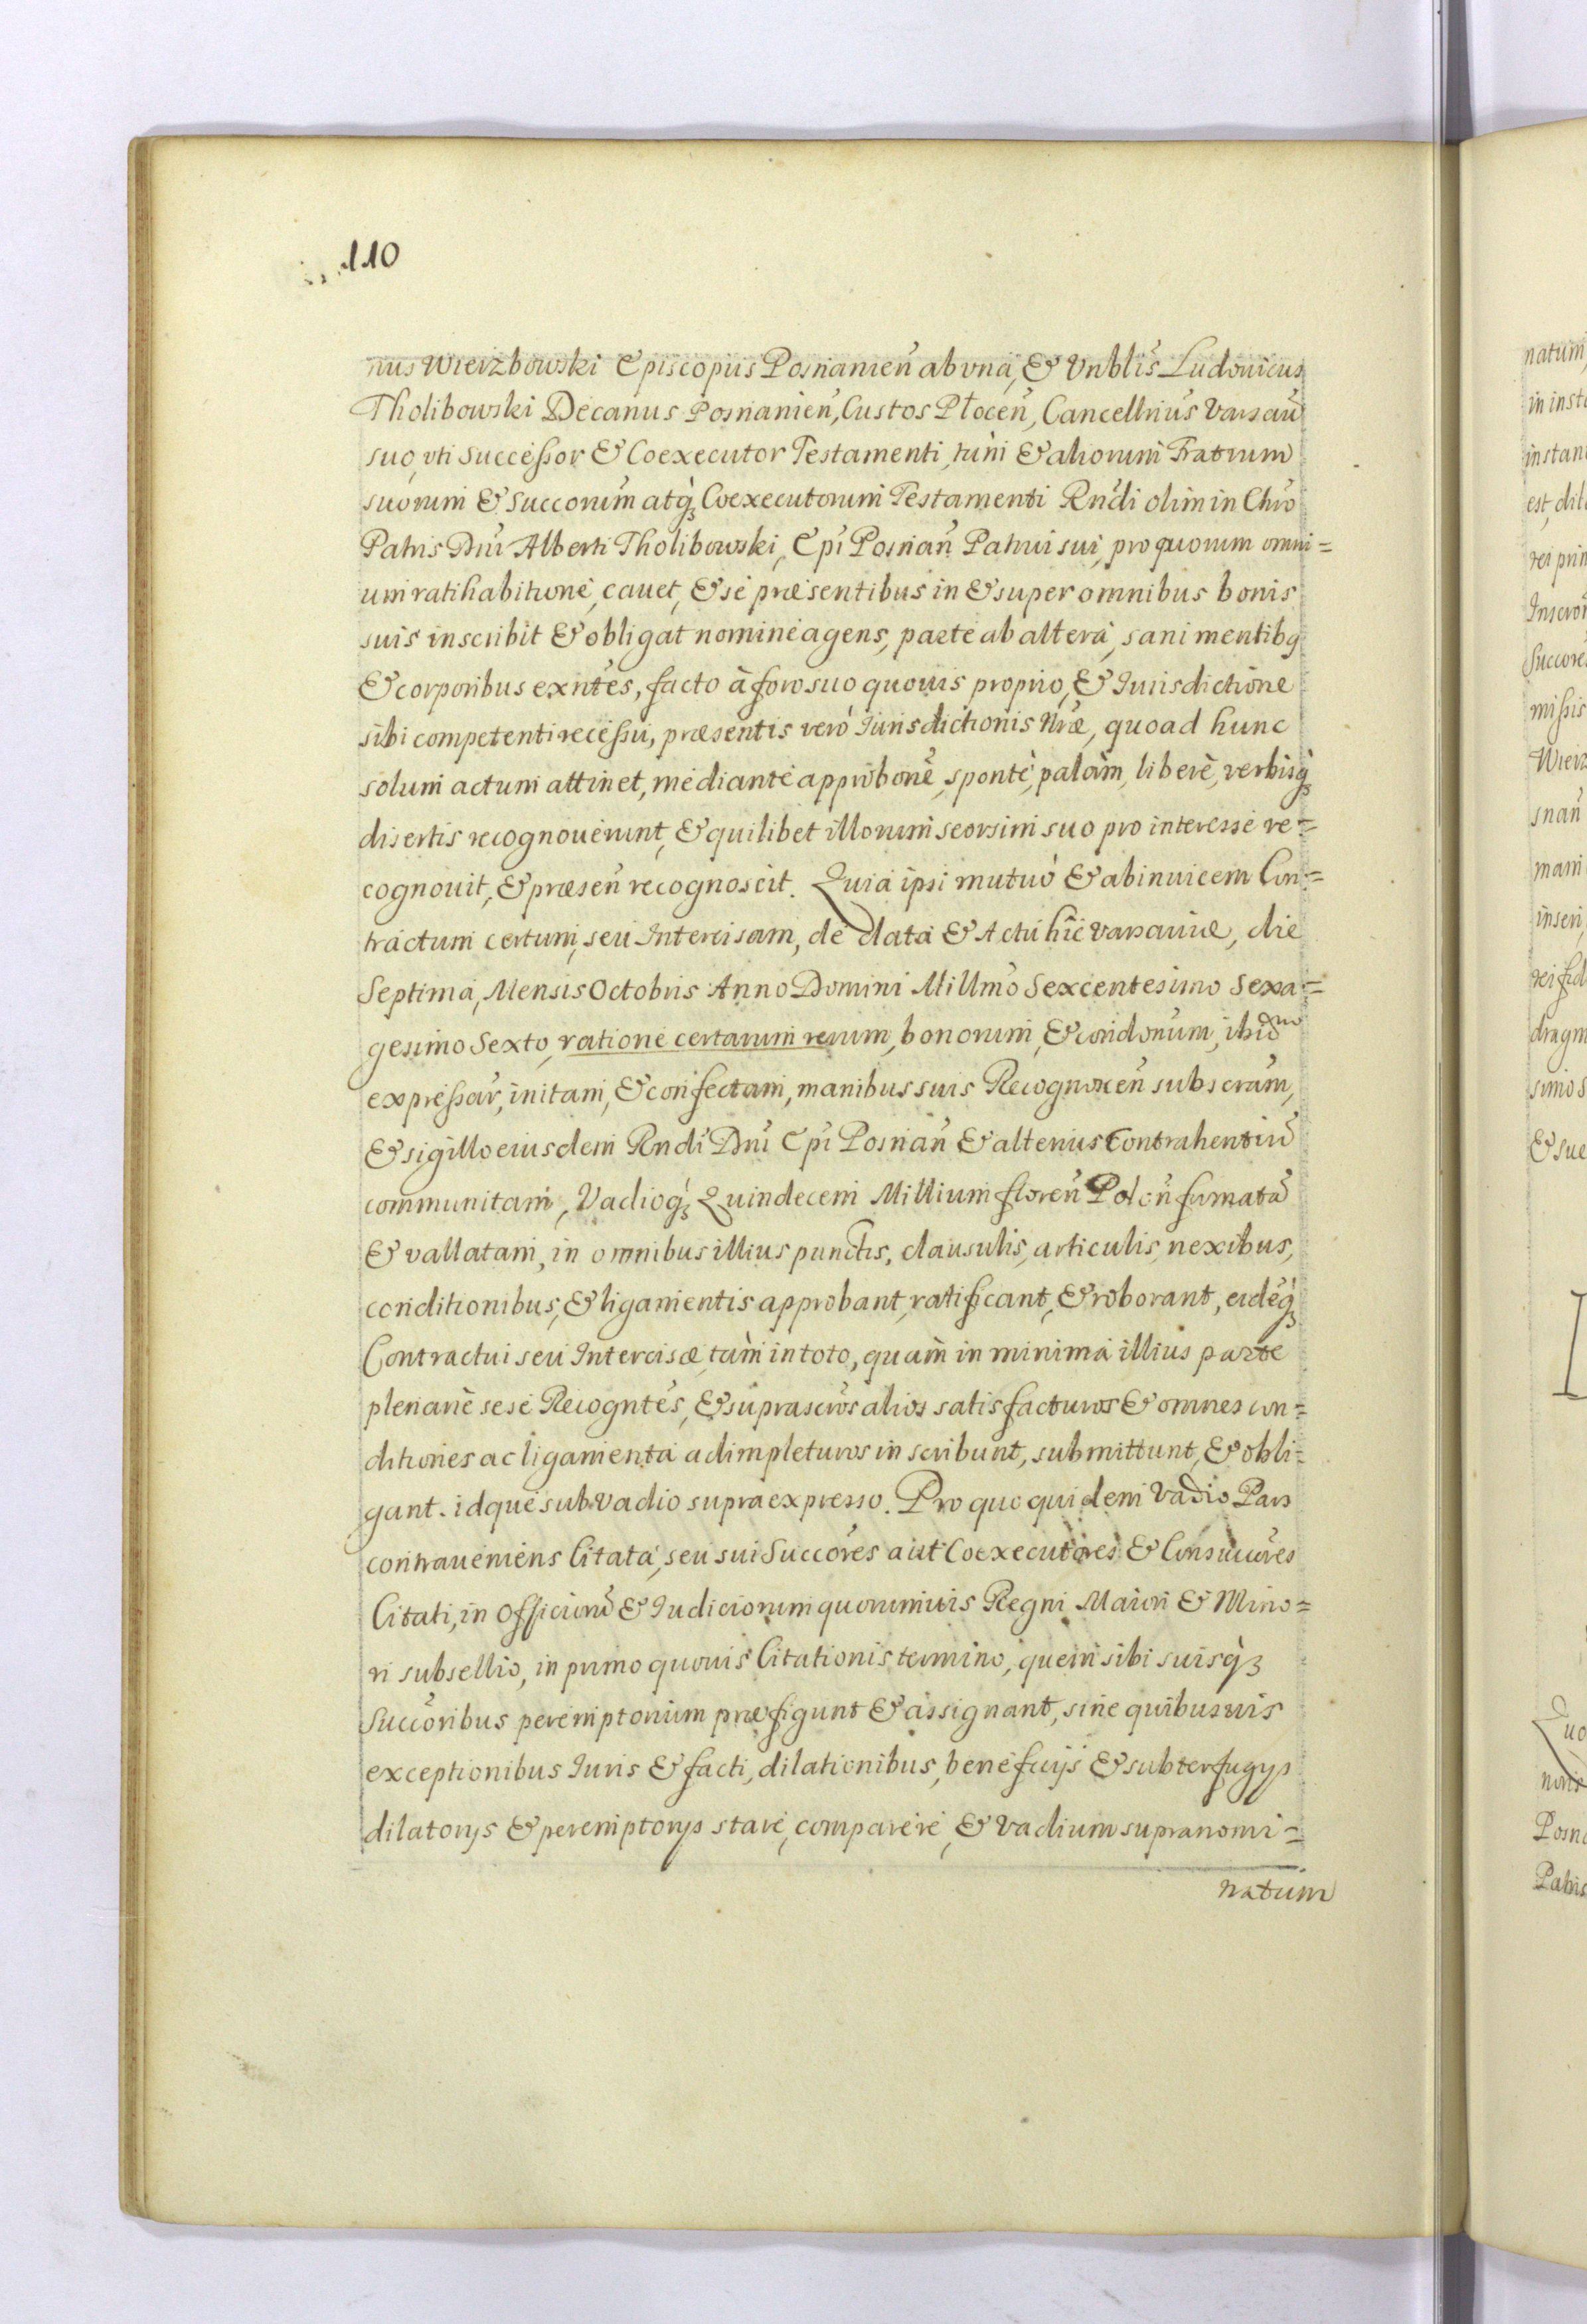 110
nus Wierzbowski Episcopus Posnanień ab vna, & Vnblis Ludouicus
Tholibowski Decanus Posnanień, Custos Płoceń, Cancellrius Varsaū
suo, vti Successor & Coexecutor Testamenti, tùm & aliorum Fratrum
suorum & Succorum atq́ꝫ Coexecutorum Testamenti Rndi olim in Chro
Patris Dni Alberti Tholibowski, Epi Posnań Patrui sui, pro quorum omni=
um ratihabitione, cauet, & se præsentibus in & super omnibus bonis
suis inscribit & obligat nomine agens, parte ab altera, sani mentibꝫ
& corporibus exntes, facto à foro suo quouis proprio, & Iurisdictione
sibi competenti recessu, præsentis verò Iurisdictionis Nræ, quoad hunc
solum actum attinet, mediante approbone, sponte, palàm, liberè, verbisq́ꝫ
disertis recognouerunt, & quilibet illorum seorsim suo pro interesse re=
cognouit, & præseń recognoscit. Quia ipsi mutuò & abinuicem Con=
tractum certum, seu Intercisam, de data & Actu hic Varsauiæ, die
Septima, Mensis Octobris Anno Domini Millmo Sexcentesimo Sexa=
gesimo Sexto, ratione certarum rerum, bonorum, & condonum, ibid
expressar, initam, & confectam, manibus suis Recognoceń subscram,
& sigillo eiusdem Rndi Dni Epi Posnań & alterius Contrahentiū
communitam, Vadioq́ꝫ Quindecem Millium floreń Poloń firmatā
& vallatam, in omnibus illius punctis, clausulis, articulis, nexibus,
conditionibus, & ligamentis approbant, ratificant, & roborant, eidéq́ꝫ
Contractui seu Intercisæ, tàm in toto, quàm in minima illius parte
plenariè sese Recogntes, & suprascros alios satisfacturos & omnes con=
ditiones ac ligamenta adimpleturos inscribunt, submittunt, & obli=
gant. idque sub vadio supra expresso. Pro quo quidem Vadio Pars
contraueniens Citata, seu sui Succores aut Coexecutores & Consuccores
Citati, in Officiorū & Iudiciorum quorumuis Regni Maiori & Mino=
ri subsellio, in primo quouis Citationis termino, quem sibi suisq́ꝫ
Succoribus peremptorium præfigunt & assignant, sine quibusuis
exceptionibus Iuris & facti, dilationibus, beneficijs & subterfugys
dilatorys & peremptorys stare, comparere, & Vadium supranomi=
natum